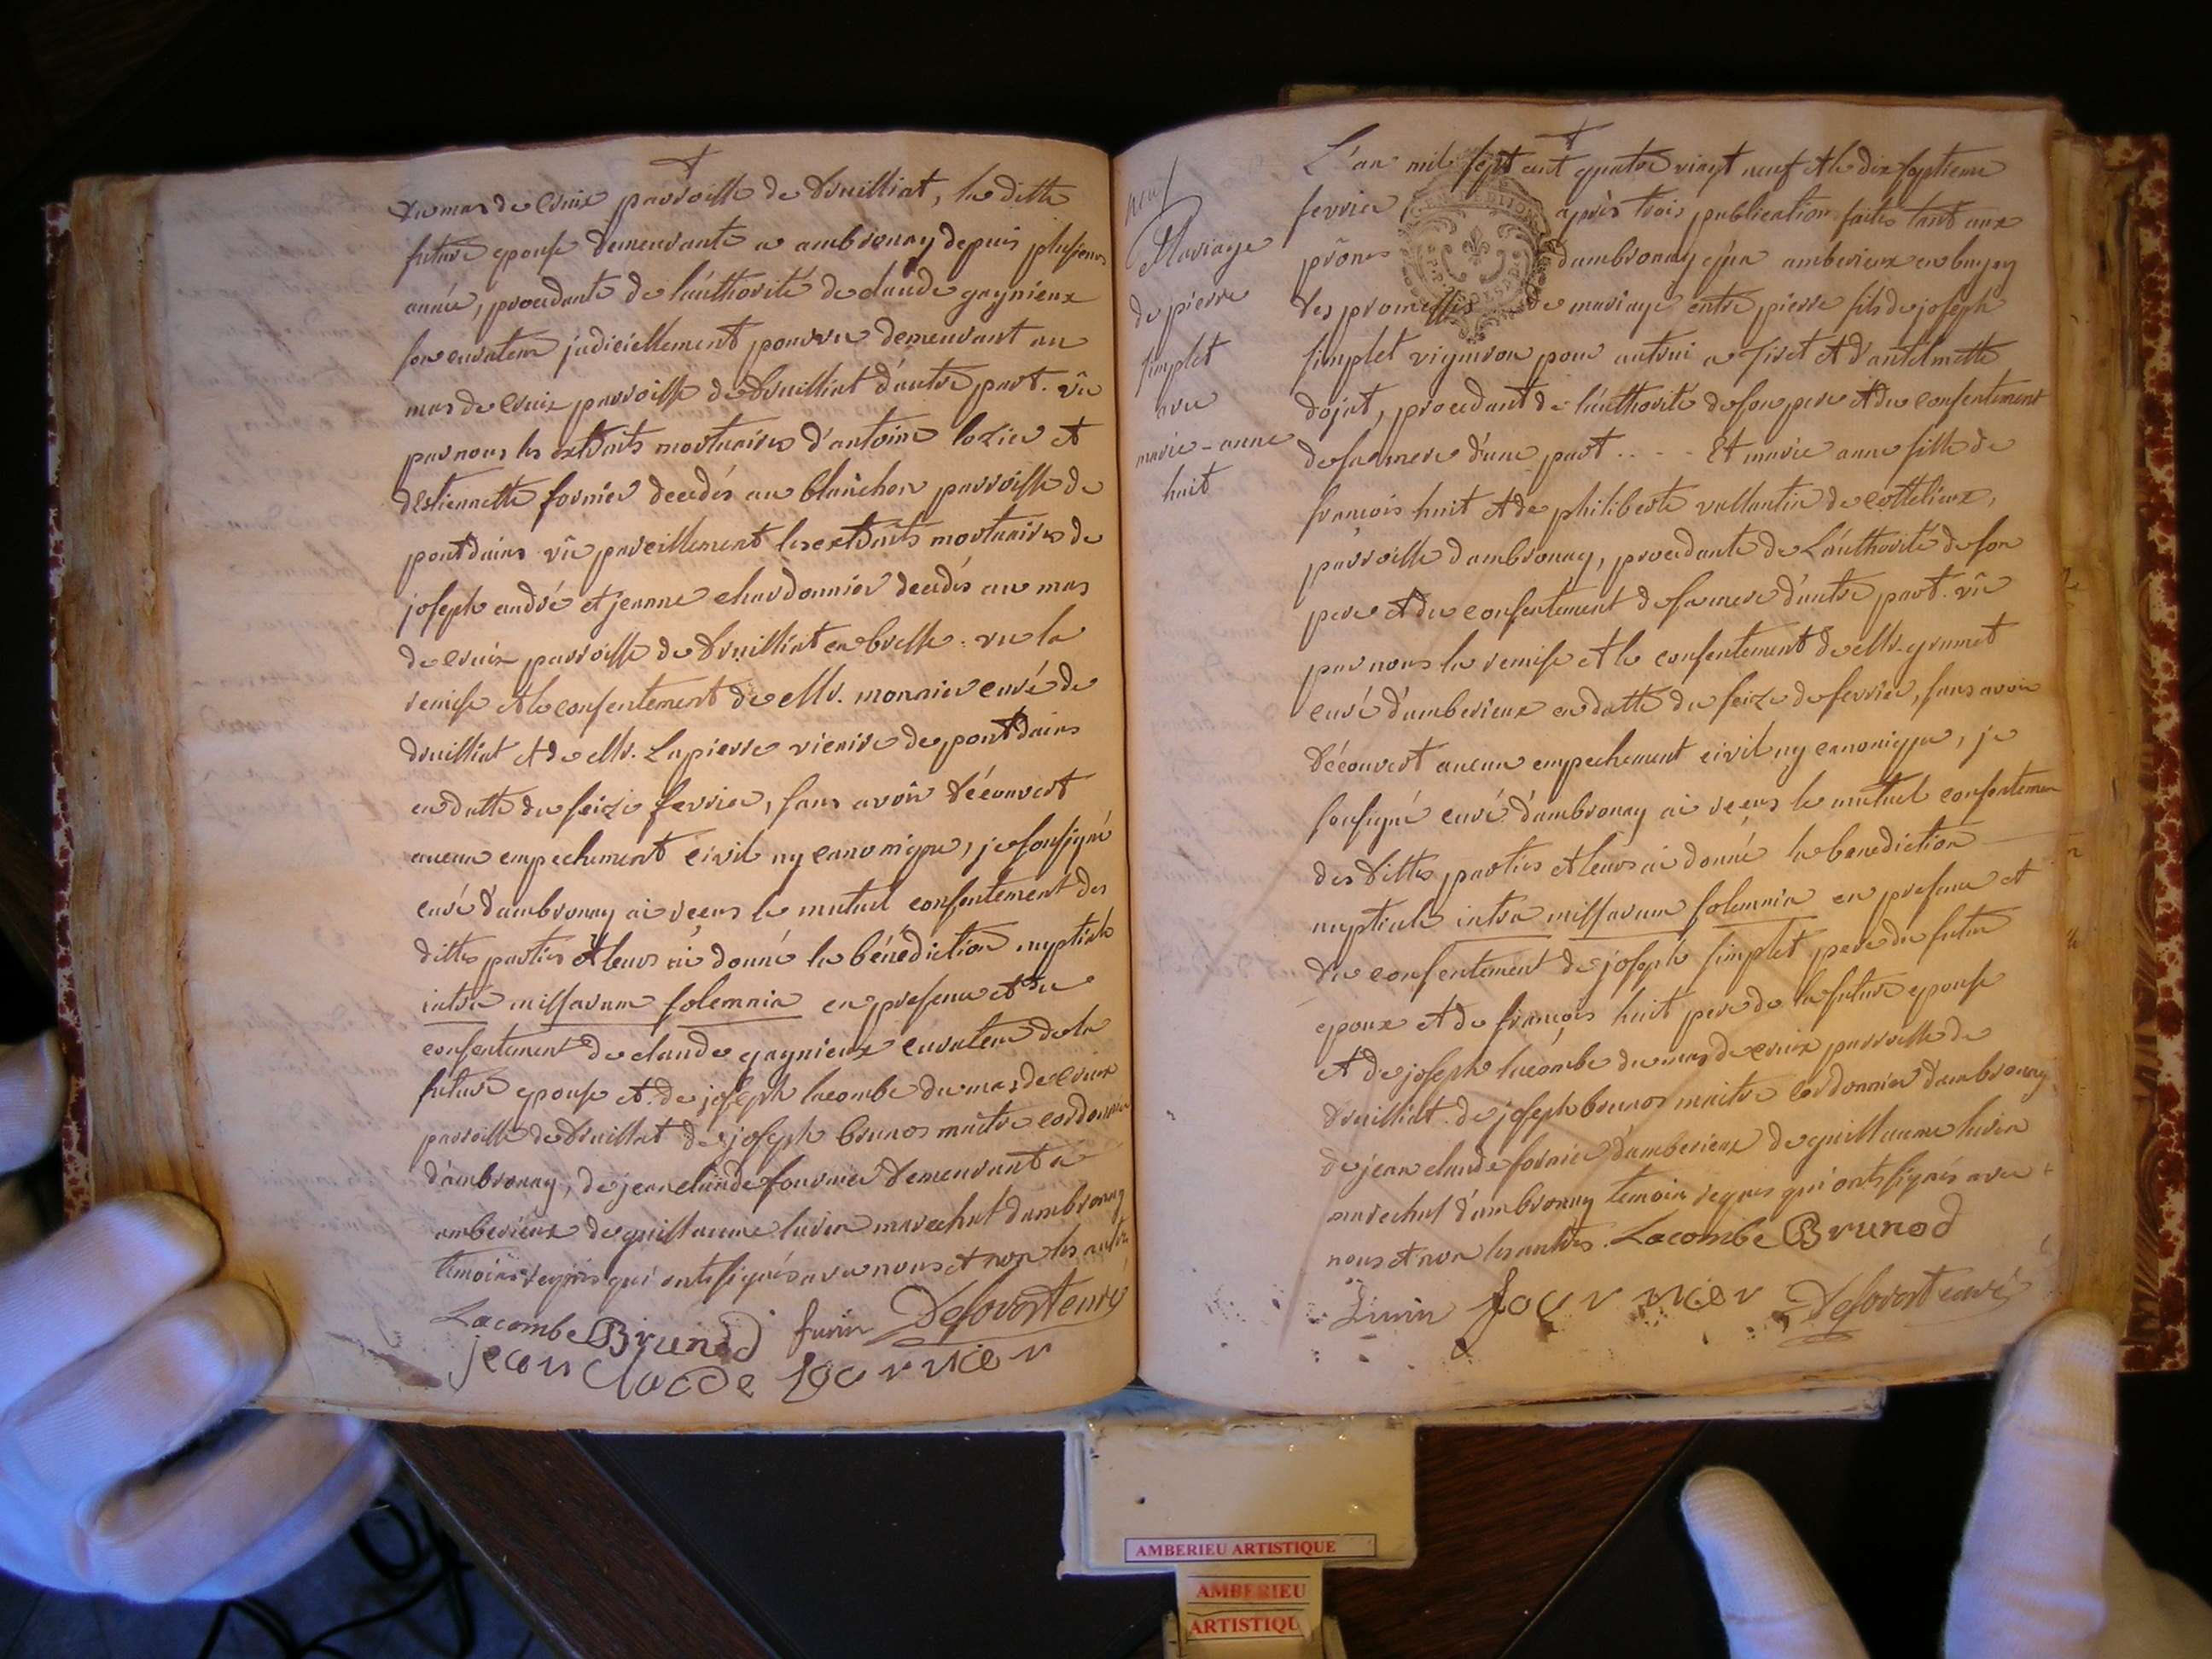 du mas de Croix parroisse de Druilliat, la ditte
future epouse demeurante a ambronay depuis plusieurs
année, procedante de l'authorité de claude gagnieux
son curateur judiciellement pourvu demeurant au
mas de Croix parroisse de Druilliat d'autre part. vû
par nous les extraits mortuaires d'antoine lozier et
d'Estiennette fornier decedés au blanchon parroisse de
pontdains vû pareillement les extraits mortuaires de
joseph andré et jeanne chardonnier decedés au mas
de Croix parroisse de Druilliat en bresse. vu la
remise et le consentement de Mr. monnier curé de
druilliat et de Mr. Lapierre vicaire de pontdains
en datte du seize fevrier, sans avoir découvert
aucun empechement civil ny canonique, je sousigné
curé d'ambronay ai reçus le mutuel consentement des
dittes parties et leurs ai donné la bénédiction nuptiale
intra missarum solemnia en presence et du
consentement de claude gagnieux curateur de la
future epouse et de joseph lacombe du mas de Croix
parroisse de Druillat de joseph brunos maitre cordonnier
d'ambronay, de jean claude fournier demeurant a
amberieux de guillaume luvin marechal d'ambronay
temoins requis qui ont signés avec nous et non les autres
Lacombe Brunod luvin Desforest curé
jean Claude Fournier
neuf
Mariage
de pierre
simplet
avec
marie-anne
huit
L'an mil sept cent quatre vingt neuf et le dix septieme
fevrier après trois publications faites tant aux
prônes d'ambronay qu'a amberieux en bugey
des promesses de mariage entre pierre fils de joseph
simplet vigneron pour autrui a Tiret et d'antelmette
dojat, procedant de l'authorité de son pere et du consentement
de sa mere d'une part . . - Et marie anne fille de
françois huit et de philiberte vallantin de cottelieux,
parroisse d'ambronay, procedante de L'authorité de son
pere et du consentement de sa mere d'autre part. vû
par nous la remise et le consentement de Mr. grumet
curé d'amberieux en datte du seize de fevrier, sans avoir
découvert aucun empechement civil ny canonique, je
sousigné curé d'ambronay ai reçus le mutuel consentemen
des dittes parties et leurs ai donné la benediction
nuptiale intra missarum solemnia en presence et
du consentement de joseph simplet pere du futur
epoux et de françois huit pere de la future epouse
et de joseph lacombe du mas de croix parroisse de
druilliat. de joseph brunos maitre cordonnier d'ambronay
de jean claude fornier d'amberieux de guillaume luvin
marechal d'ambronay temoins requis qui ont signés avec
nous et non les autres. Lacombe Brunod
Luvin fournier Desforest curé
AMBERIEU ARTISTIQUE
AMBERIEU
ARTISTIQU